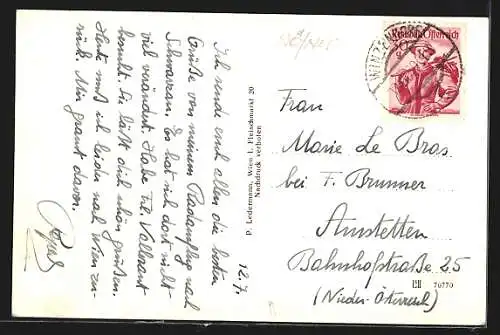 12.7.
Ich sende euch allen die besten
Grüße von meinem Radausflug nach
Schwarzau. Es hat sich dort nicht
viel verändert. Habe Frl. Vallerant
besucht. Sie läßt dich schön grüßen.
Heute muß ich leider nach Wien zu-
rück. Mir graut davon.
P. Ledermann, Wien I, Fleischmarkt 20
Nachdruck verboten
Republik Österreich
Frau
Marie Le Bras
bei F. Brunner
Amstetten
Bahnhofstraße 25
(Nieder-Österreich)
70770